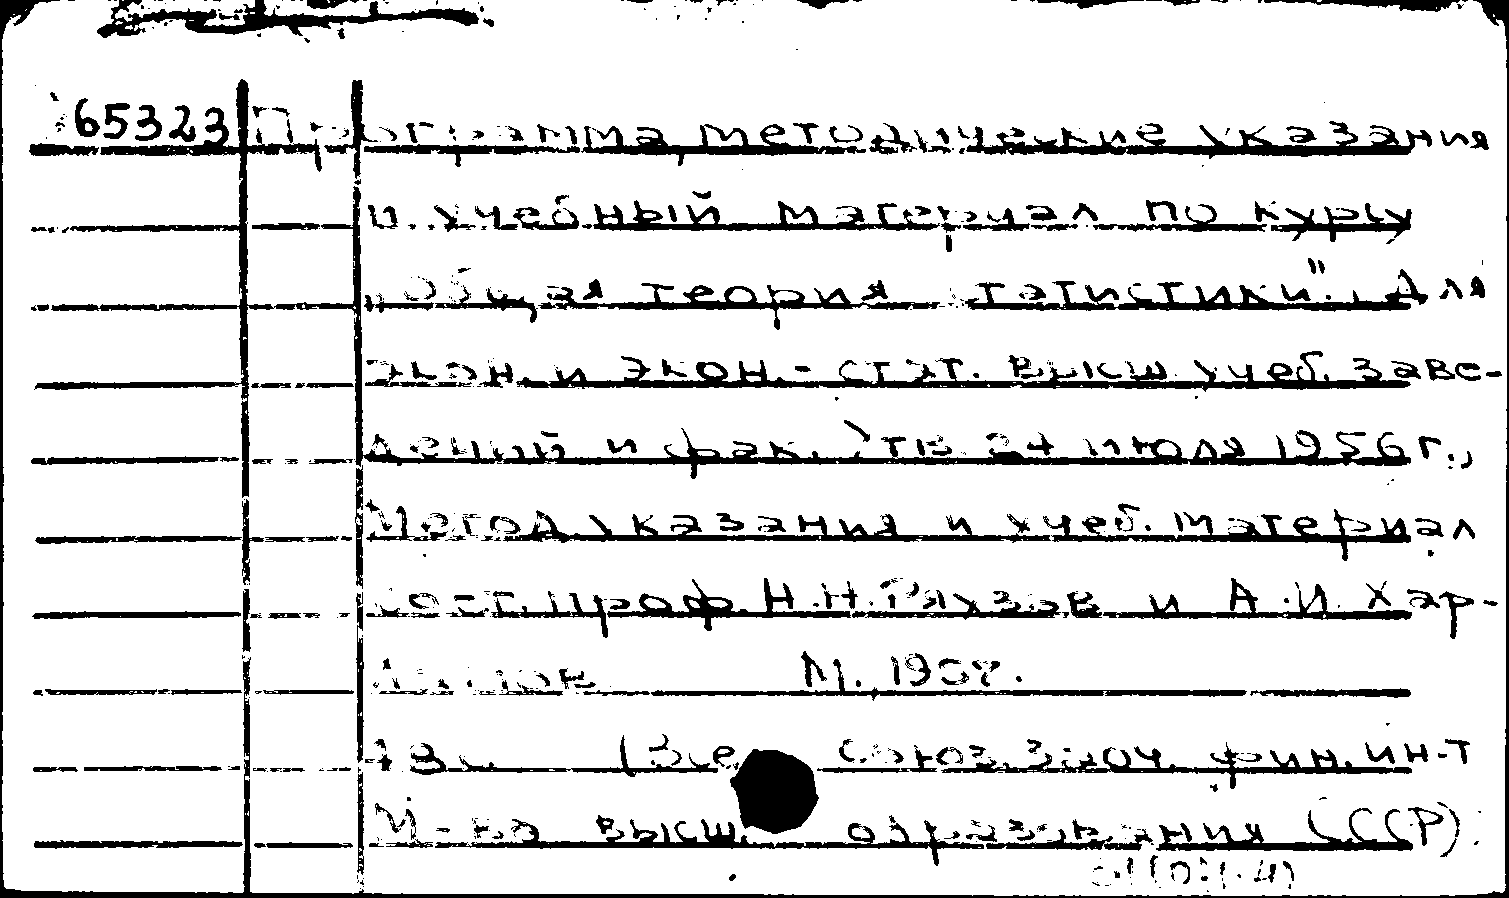 65323 Программа методические указания
и учебный материал по курсу
„Общая теория статистики". Для
экон. и экон.-стат. высш. учеб. заве-
дений и фак. Утв 24 июля 1956 г.,
Метод. указания и учеб. материал
сост. проф. Н.Н. Ряузов и А.И. Хар-
ламов М. 1957.
с. (Все союз. заоч. фин. ин-т
М-ва высш. образования СССР).